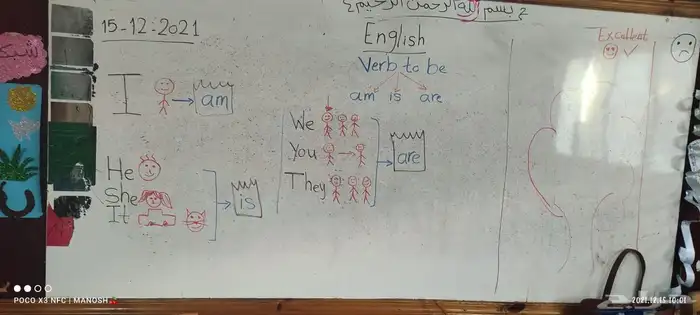 بسم الله الرحمن الرحيم
15-12-2021
English
Excellent
Verb to be
am is are
I am
He
She
It
is
We
You
They
are
POCO X3 NFC | MANOSH
2021.12.15 10:01